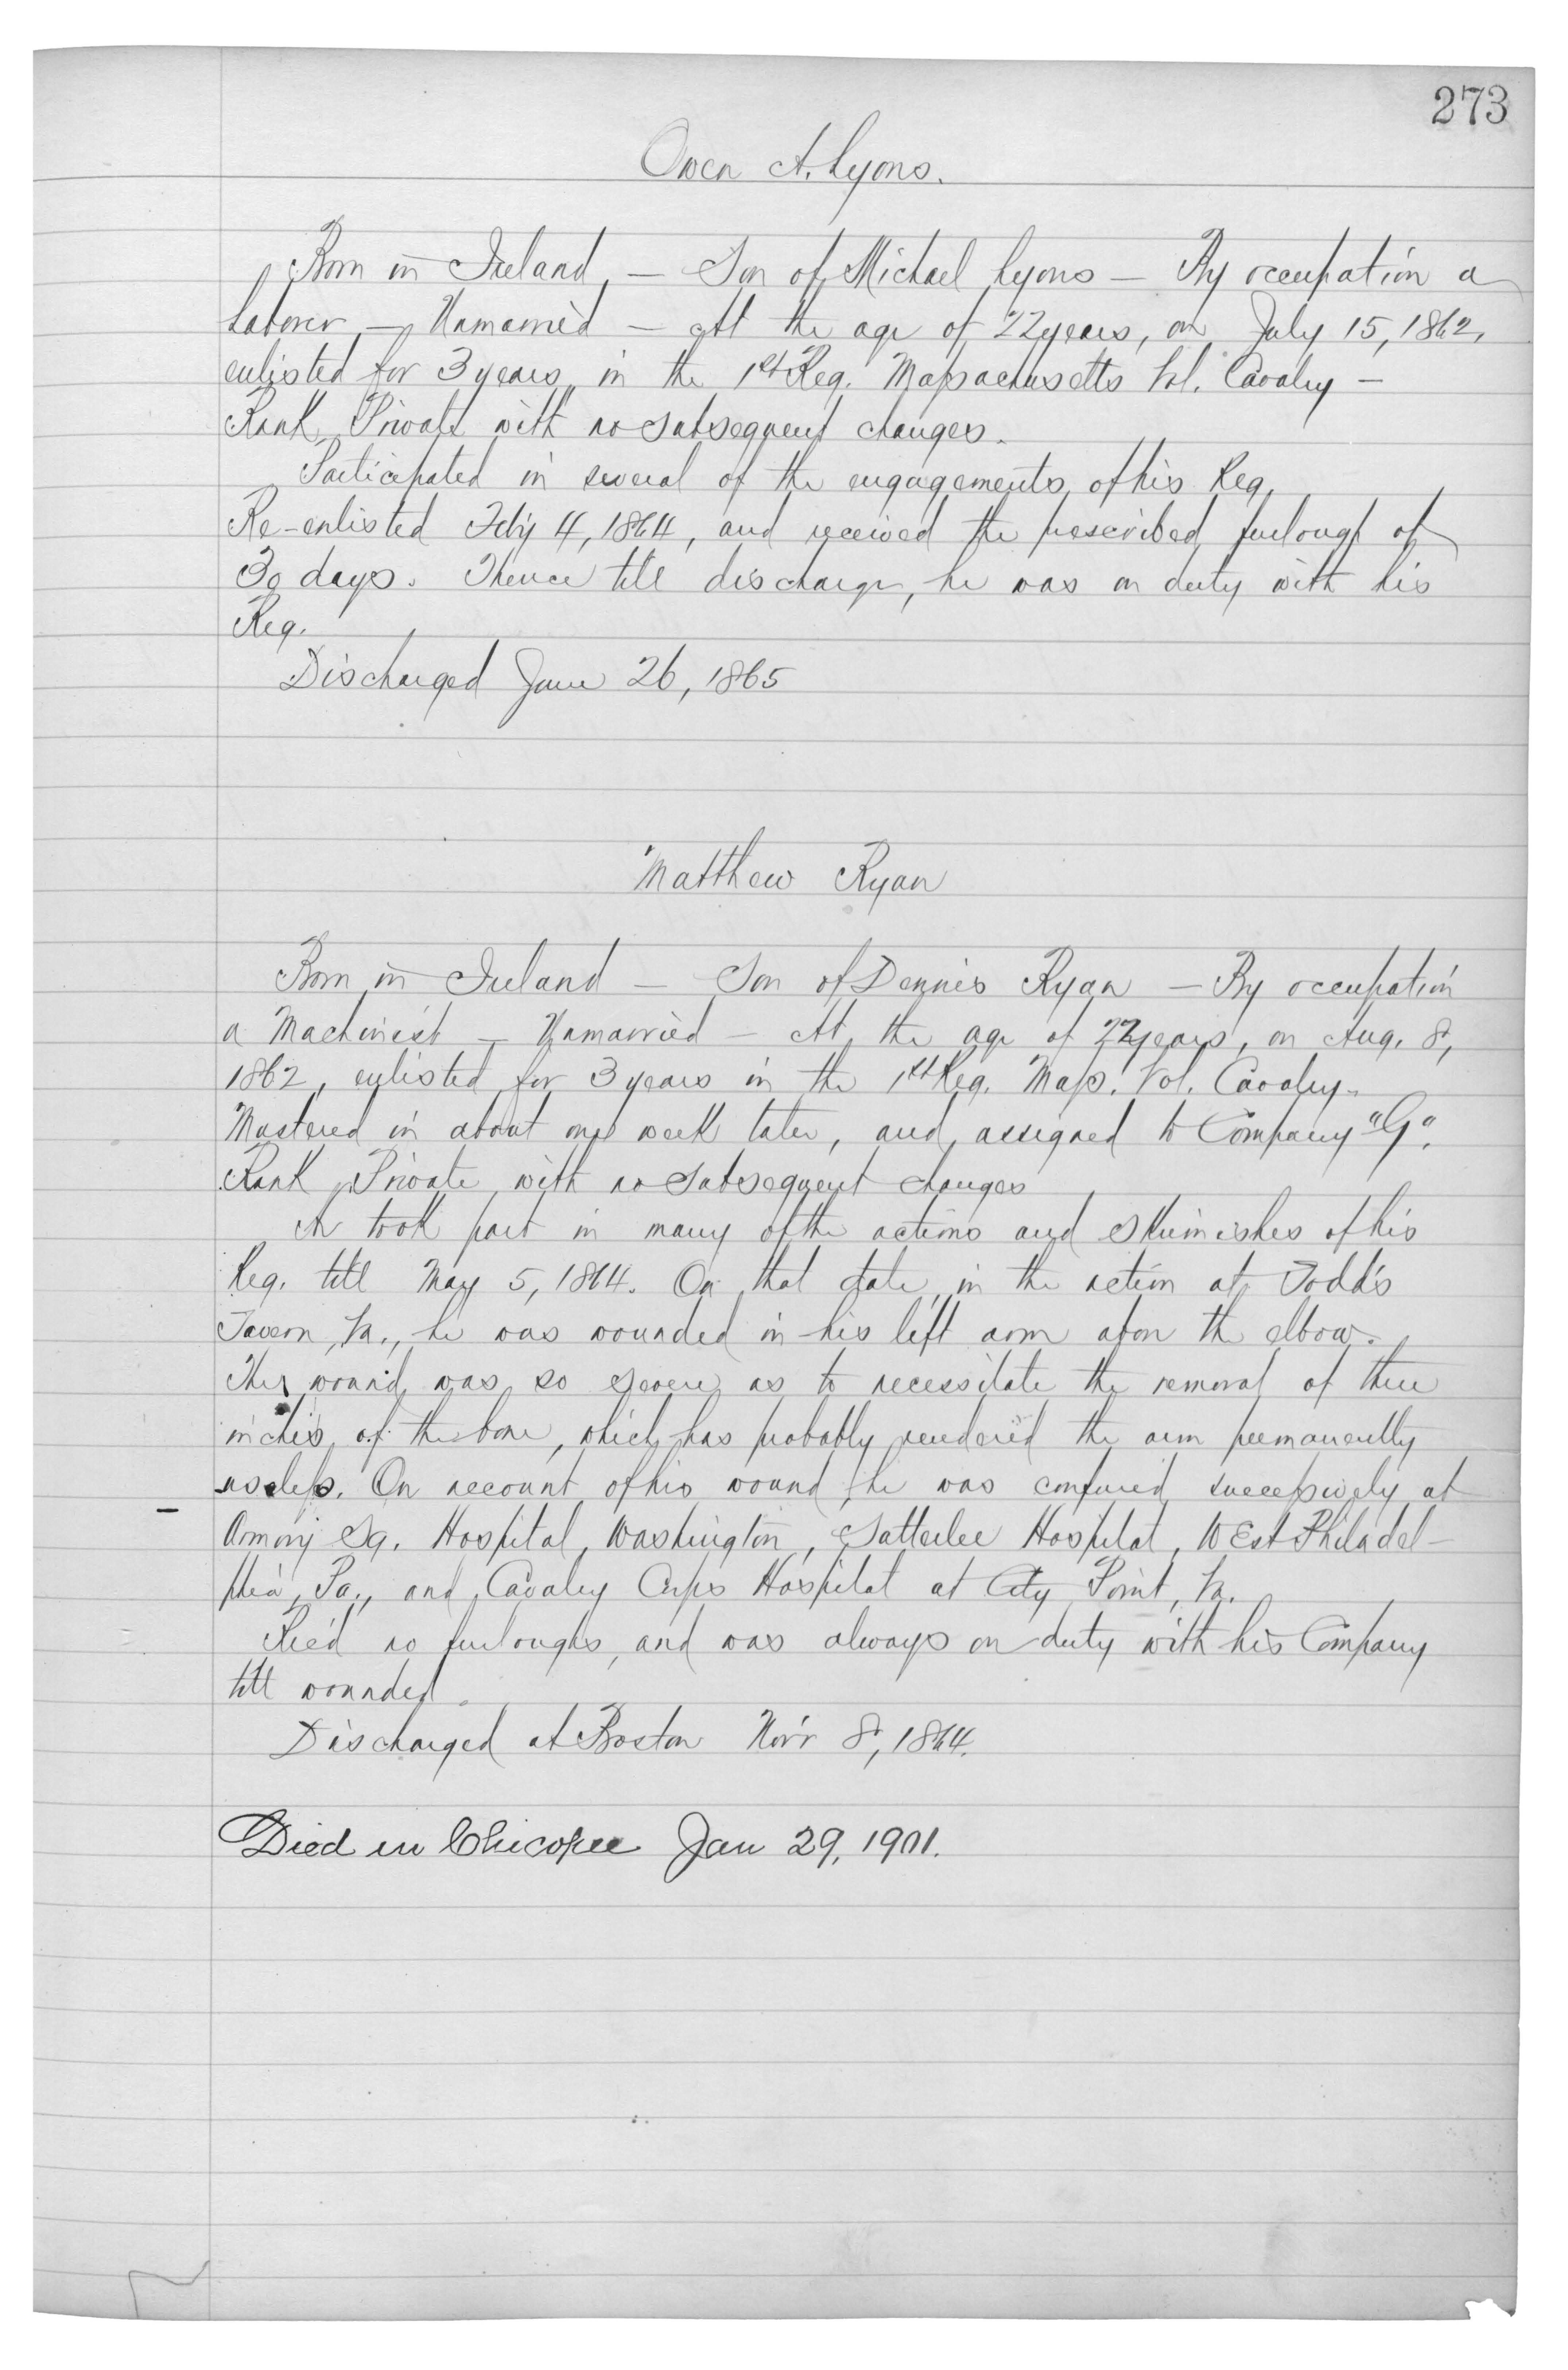 273
Owen A. Lyons.
Born in Ireland, — Son of Michael Lyons — By occupation a
Laborer, — Unmarried — At the age of 22 years, on July 15, 1862,
enlisted for 3 years, in the 1st Reg. Massachusetts Vol. Cavalry —
Rank, Private with no subsequent changes.
Participated in several of the engagements of his Reg.
Re-enlisted Feb'y 4, 1864, and received the prescribed furlough of
30 days. Thence till discharge, he was on duty with his
Reg.
Discharged June 26, 1865
Matthew Ryan
Born in Ireland — Son of Dennis Ryan — By occupation
a Machinist — Unmarried — At the age of 22 years, on Aug. 8,
1862, enlisted for 3 years in the 1st Reg. Mass. Vol. Cavalry.
Mustered in about one week later, and assigned to Company "G".
Rank, Private, with no subsequent changes
He took part in many of the actions and skirmishes of his
Reg. till May 5, 1864. On that date, in the action at Todd's
Tavern, Va., he was wounded in his left arm above the elbow.
The wound was so severe as to necessitate the removal of three
inches of the bone, which has probably rendered the arm permanently
useless. On account of his wound he was confined successively at
Armory Sq. Hospital, Washington, Satterlee Hospital, West Philadel-
phia, Pa., and Cavalry Corps Hospital at City Point, Va.
Rec'd no furloughs, and was always on duty with his Company
till wounded.
Discharged at Boston Nov'r 8, 1864.
Died in Chicopee Jan 29, 1901.